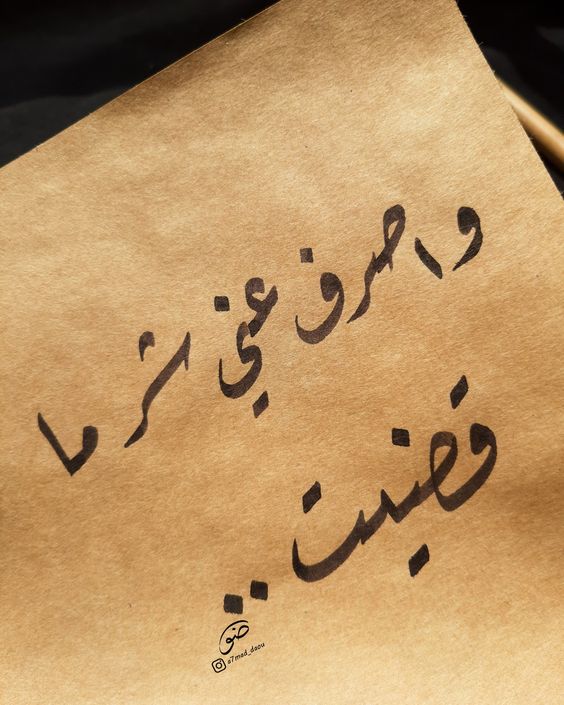 واصرف عني شر ما
قضيت ..
ضو
a7mad_daou